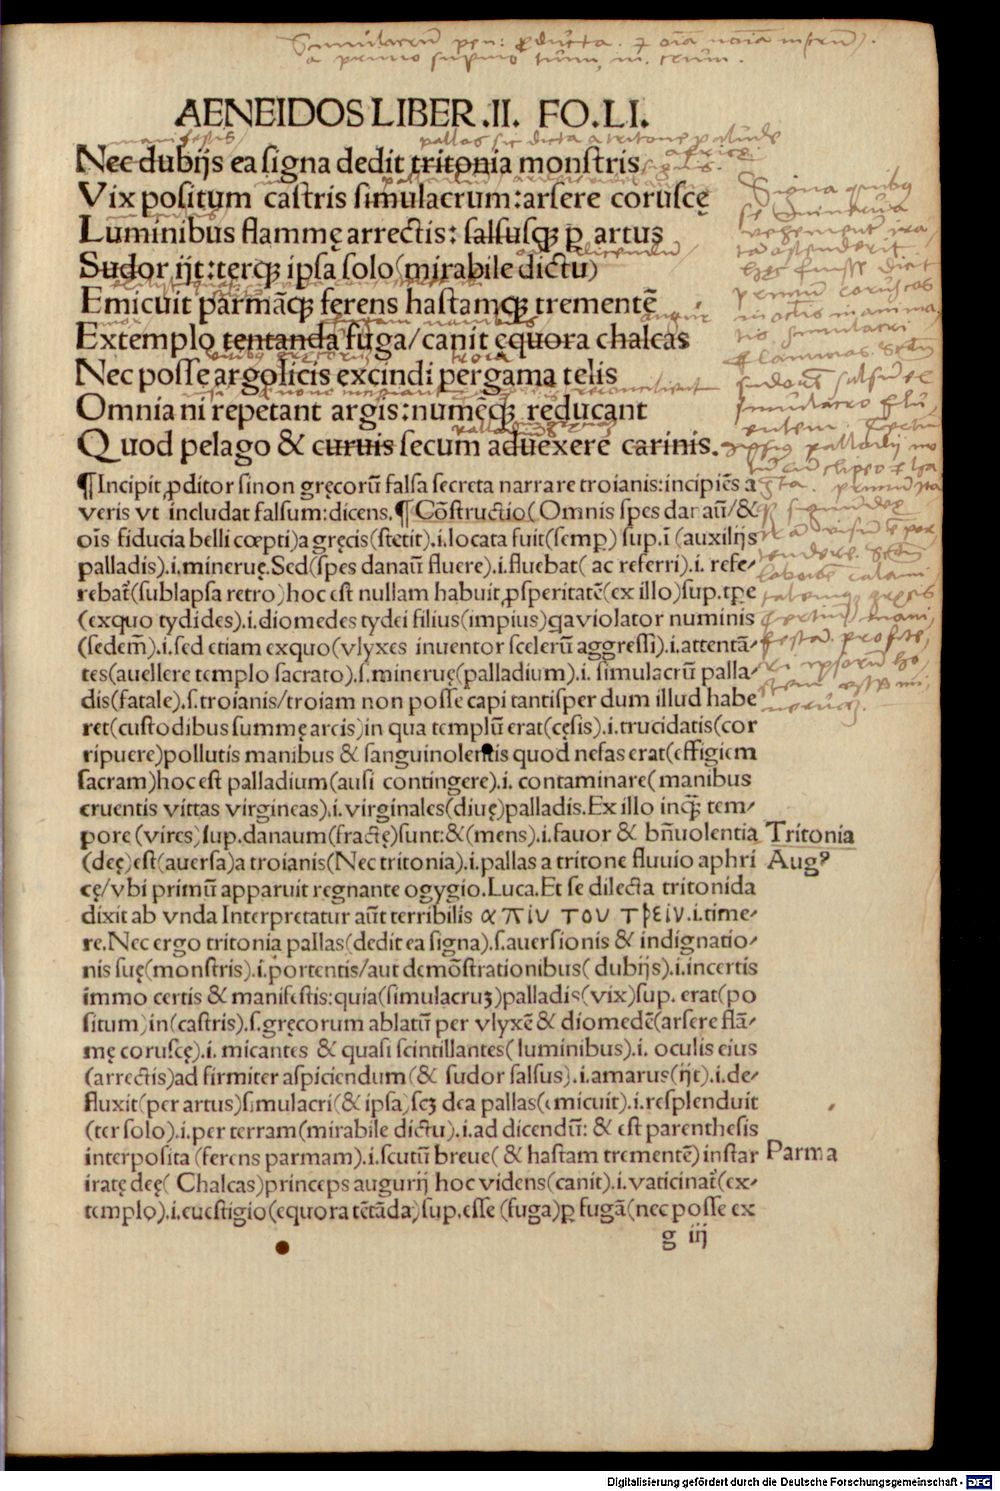 Simulacrū pen: ꝓducta. ⁊ oīa noīa in (crū).
a primo supino tum, in. crum.
AENEIDOS LIBER .II. FO.LI.
manifestis
pallas sic dicta a tritone palude
africę.
Nec dubijs ea signa dedit tritonia monstris
signis.
Vix positum castris simulacrum: arsere coruscę
Luminibus flammę arrectis: salsusqꝫ ꝑ artus
dicendum
Sudor ijt: terqꝫ ipsa solo (mirabile dictu)
Emicuit parmāqꝫ ferens hastamqꝫ trementē
mox
augur
Extemplo tentanda fuga/ canit equora chalcas
troia
Nec posse argolicis excindi pergama telis
Omnia ni repetant argis: numēqꝫ reducant
Quod pelago & curuis secum aduexere carinis.
Signa quibus
se Minerua
vehementer ira,
tā ostenderit
hęc fuisse dicit
primum coruscas
in oculis inanima,
tis simulacri
flammas.
sudorē salsū e
simulacro flu,
entem. Tertiū
ipsius palladij mo
tū cū clipeo & ha
sta.
¶ Incipit ꝓditor sinon gręcorū falsa secreta narrare troianis: incipiēs a
veris vt includat falsum: dicens. ¶ Cōstructio (Omnis spes danaū/ &
oīs fiducia belli cœpti) a gręcis (stetit) .i. locata fuit (semꝑ) sup. ī (auxilijs
palladis) .i. mineruę. Sed (spes danaū fluere) .i. fluebat ( ac referri) .i. refe⸗
rebat̄ (sublapsa retro) hoc est nullam habuit ꝓsperitatē (ex illo) sup. tꝑe
(exquo tydides) .i. diomedes tydei filius (impius) q̄a violator numinis
(sedem̄) .i. sed etiam exquo (vlyxes inuentor scelerū aggressi) .i. attentā⸗
tes (auellere templo sacrato) .s. mineruę (palladium) .i. simulacrū palla⸗
dis (fatale) .s. troianis/ troiam non posse capi tantisper dum illud habe
ret (custodibus summę arcis) in qua templū erat (cęsis) .i. trucidatis (cor
ripuere) pollutis manibus & sanguinolentis quod nefas erat (effigiem
sacram) hoc est palladium (ausi contingere) .i. contaminare ( manibus
cruentis vittas virgineas) .i. virginales (diuę) palladis. Ex illo inqꝫ tem⸗
pore (vires) sup. danaum (fractę) sunt: & (mens) .i. fauor & bn̄uolentia
(deę) est (auersa) a troianis (Nec tritonia) .i. pallas a tritone fluuio aphri
cę/ vbi primū apparuit regnante ogygio. Luca. Et se dilecta tritonida
dixit ab vnda Interpretatur aūt terribilis απιν του τρειν .i. time⸗
re. Nec ergo tritonia pallas (dedit ea signa) .s. auersionis & indignatio⸗
nis suę (monstris) .i. portentis/ aut demōstrationibus ( dubijs) .i. incertis
immo certis & manifestis: quia (simulacruꝫ) palladis (vix) sup. erat (po
situm) in (castris) .s. gręcorum ablatū per vlyxē & diomedē (arsere flā⸗
mę coruscę) .i. micantes & quasi scintillantes ( luminibus) .i. oculis eius
(arrectis) ad firmiter aspiciendum (& sudor salsus) .i. amarus (ijt) .i. de⸗
fluxit (per artus) simulacri (& ipsa) scꝫ dea pallas (emicuit) .i. resplenduit
(ter solo) .i. per terram (mirabile dictu) .i. ad dicendū: & est parenthesis
interposita (ferens parmam) .i. scutū breue ( & hastam trementē) instar
iratę deę ( Chalcas) princeps augurij hoc videns (canit) .i. vaticinat̄ (ex⸗
templo) .i. euestigio (equora tētāda) sup. esse (fuga) ꝑ fugā (nec posse ex
Tritonia
Augꝰ
Parma
g iij
Digitalisierung gefördert durch die Deutsche Forschungsgemeinschaft - DFG